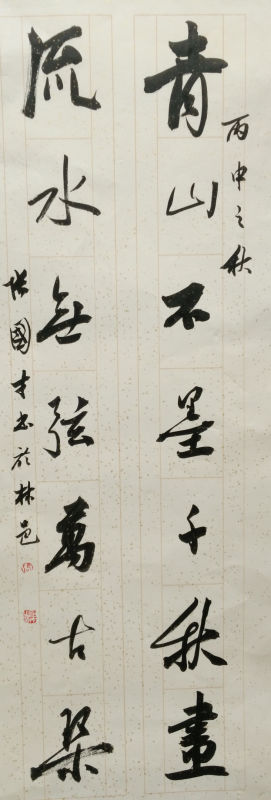 丙申之秋
青山不墨千秋畫
流水無弦萬古琴
張國才書於林邑